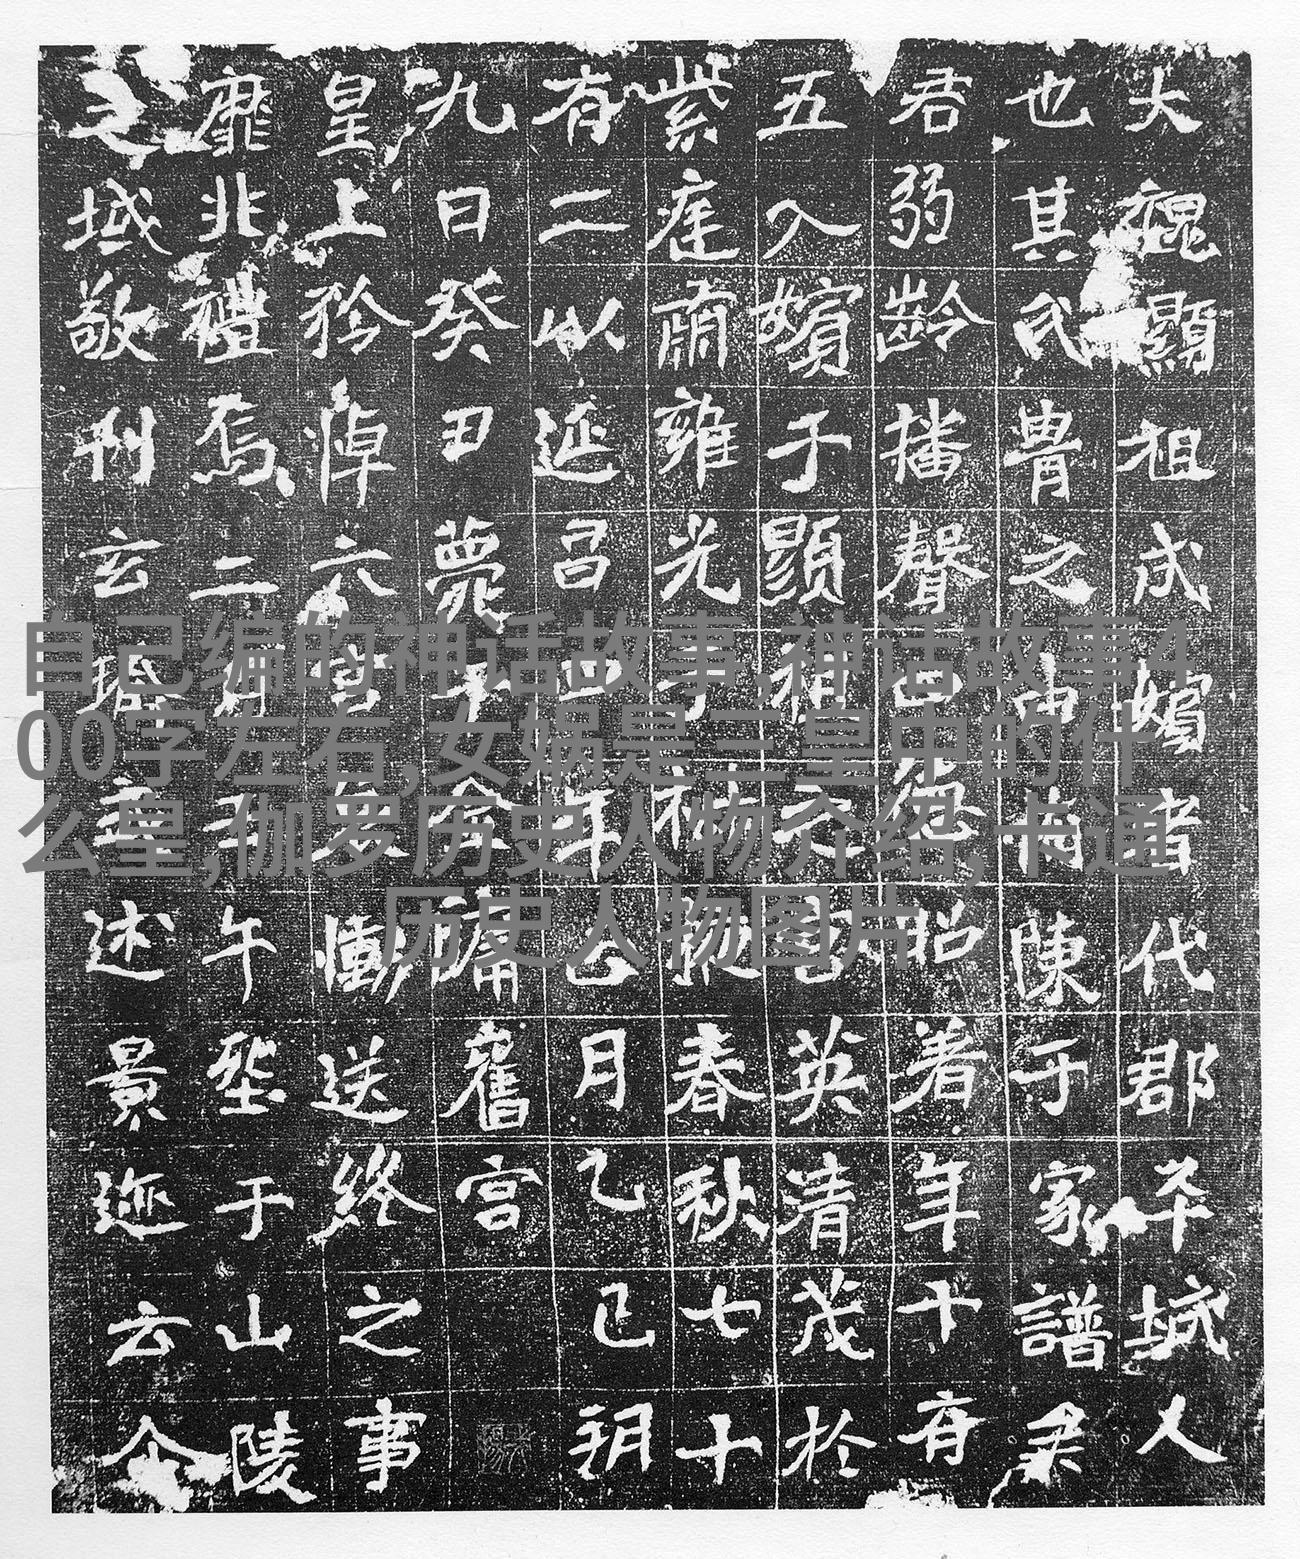 大魏顯祖成嬪者代郡平城人
也其氏胄之由陳于家譜
君弱齡播聲德昭著年十有
五入嬪于顯祖英清茂於
紫庭肅雍光于掖春秋七十
有二以延昌四年正月乙巳朔
九日癸丑薨于金墉舊宮
皇上矜悼六宮哀慟送終之事
靡非禮焉二月壬午堊于山陵
之域敬刊玄述景迹云尒
自己编的神话故事,神话故事4
00字左右,女娲是三皇中的什
么皇,伽罗历史人物介绍,卡通
历史人物图片